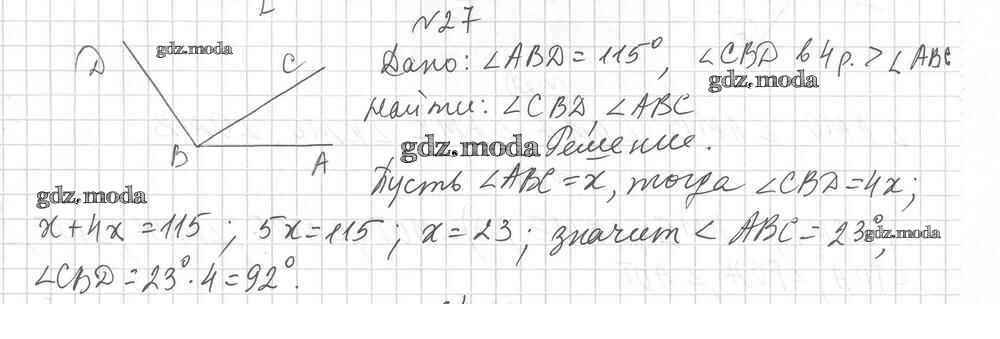 №27
D
gdz.moda
C
Дано: ∠ABD = 115°, ∠CBD в 4 р. > ∠ABC
gdz.moda
Найти: ∠CBD, ∠ABC
B
A
gdz.moda Решение.
gdz.moda
Пусть ∠ABC = x, тогда ∠CBD = 4x;
x + 4x = 115; 5x = 115; x = 23; значит ∠ABC = 23°, gdz.moda
∠CBD = 23° · 4 = 92°.